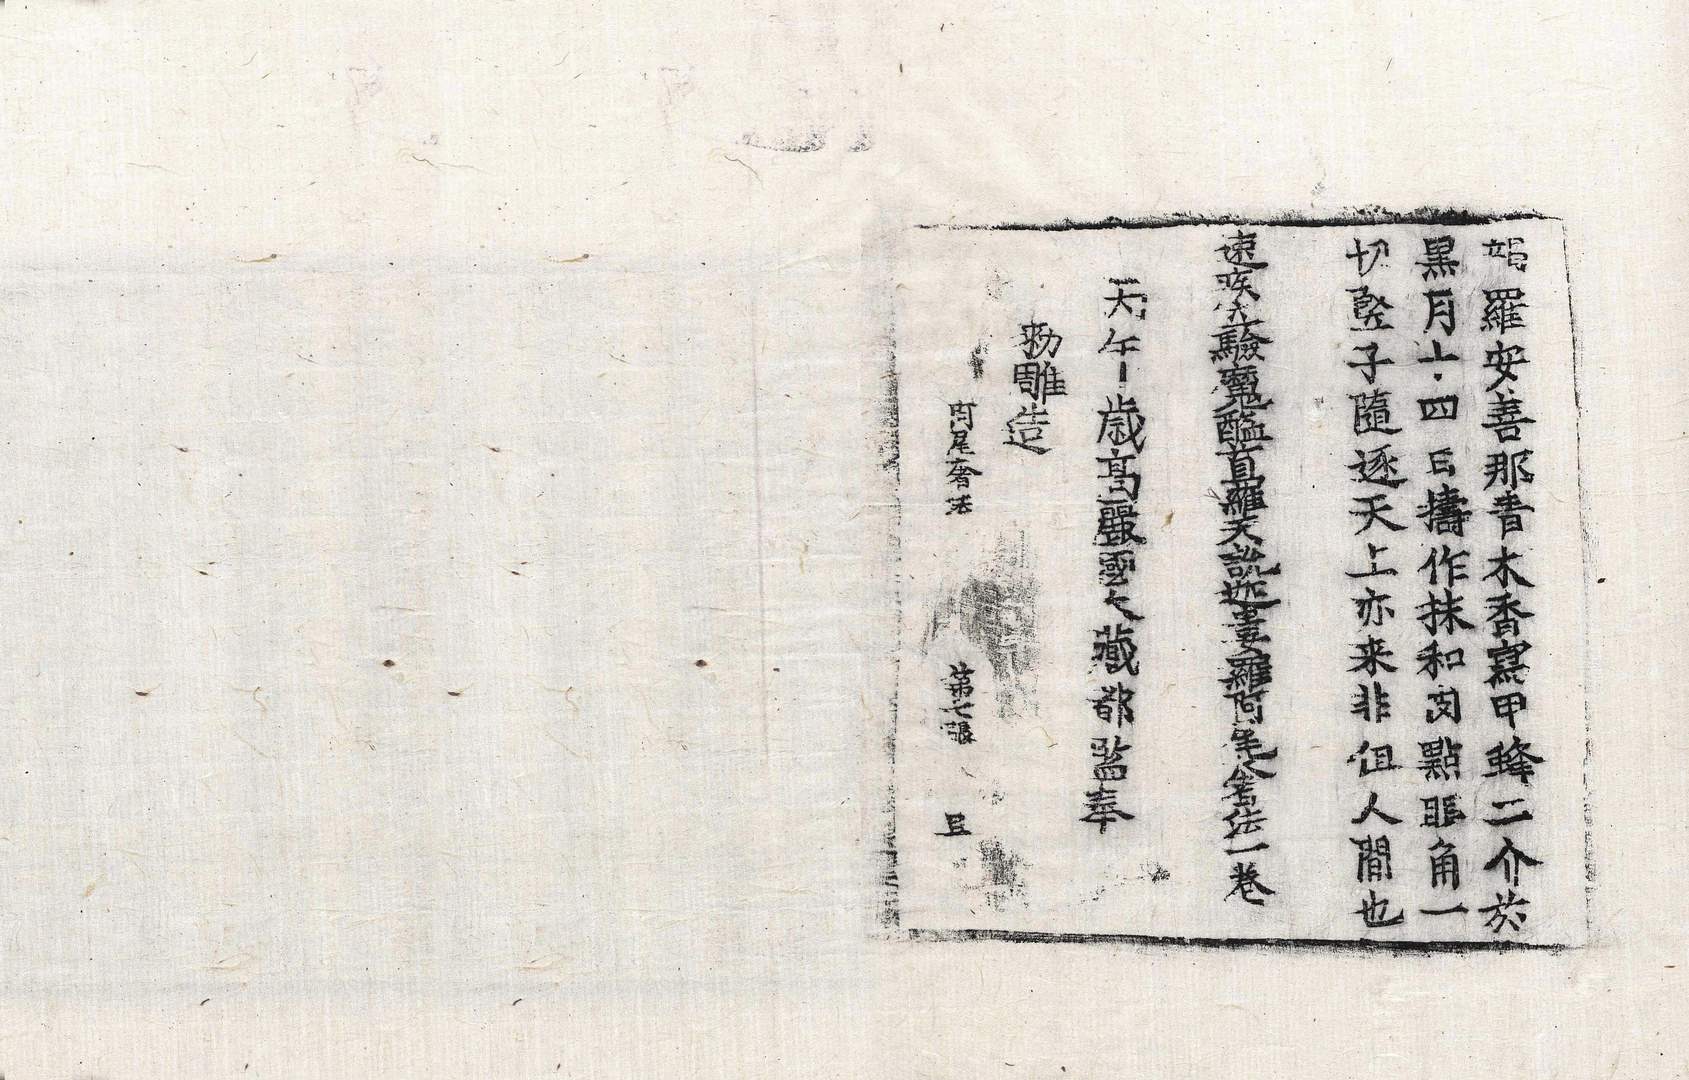 羅安善那青木香窯甲蜂二介於
黒月十四日擣作抹和肉點眼角一
切竪子隨逐天上亦来非但人間也
速疾立驗魔醯首羅天說迦婁羅阿尾奢法一卷
午歳高麗國大藏都監奉
勑雕造
阿尾奢法 第七張